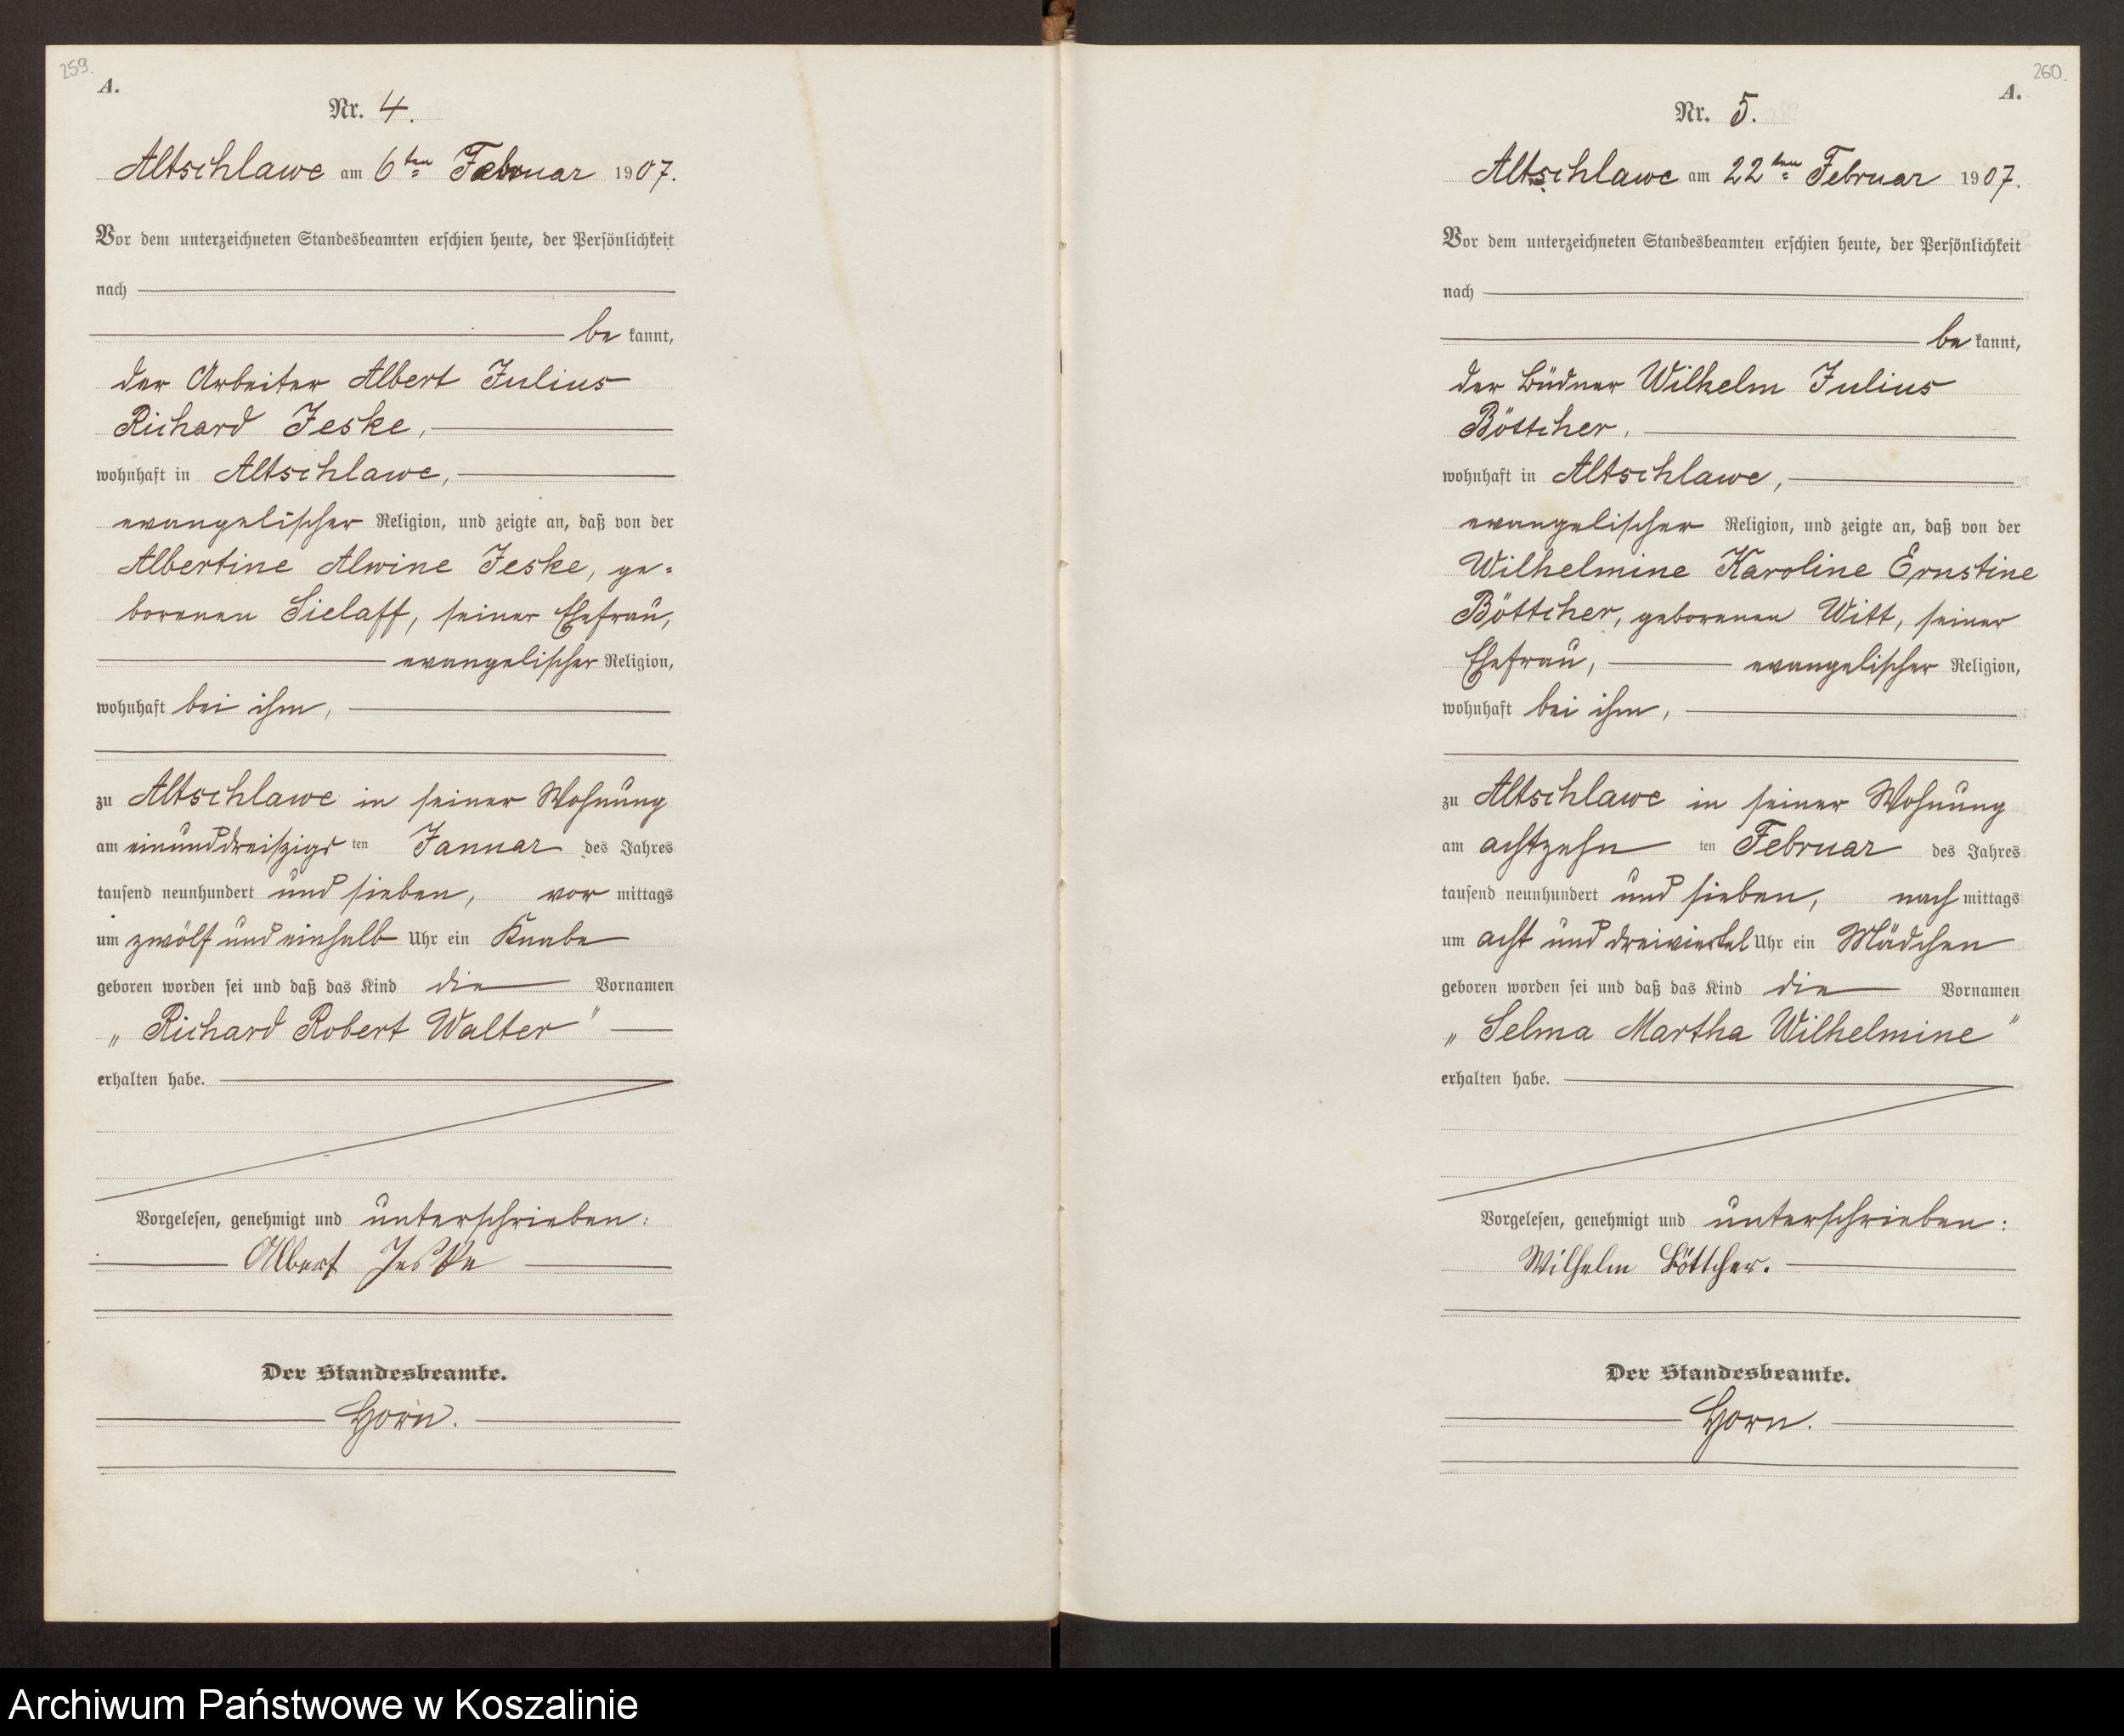 259.
A.
Nr. 4.
Altschlawe am 6ten Februar 1907.
Vor dem unterzeichneten Standesbeamten erschien heute, der Persönlichkeit
nach
be kannt,
der Arbeiter Albert Julius
Richard Jeske,
wohnhaft in Altschlawe,
evangelischer Religion, und zeigte an, daß von der
Albertine Alwine Jeske, ge-
borenen Sielaff, seiner Ehefrau,
evangelischer Religion,
wohnhaft bei ihm,
zu Altschlawe in seiner Wohnung
am einunddreiszigs ten Januar des Jahres
tausend neunhundert und sieben, vor mittags
um zwölf und einhalb Uhr ein Knabe
geboren worden sei und daß das Kind die Vornamen
„Richard Robert Walter"
erhalten habe.
Vorgelesen, genehmigt und unterschrieben:
Albert Jeske
Der Standesbeamte.
Horn.
260.
A.
Nr. 5.
Altschlawe am 22ten Februar 1907.
Vor dem unterzeichneten Standesbeamten erschien heute, der Persönlichkeit
nach
be kannt,
der Büdner Wilhelm Julius
Böttcher,
wohnhaft in Altschlawe,
evangelischer Religion, und zeigte an, daß von der
Wilhelmine Karoline Ernstine
Böttcher, geborenen Witt, seiner
Ehefrau, evangelischer Religion,
wohnhaft bei ihm,
zu Altschlawe in seiner Wohnung
am achtzehn ten Februar des Jahres
tausend neunhundert und sieben, nach mittags
um acht und dreiviertel Uhr ein Mädchen
geboren worden sei und daß das Kind die Vornamen
„Selma Martha Wilhelmine"
erhalten habe.
Vorgelesen, genehmigt und unterschrieben:
Wilhelm Böttcher.
Der Standesbeamte.
Horn.
Archiwum Państwowe w Koszalinie